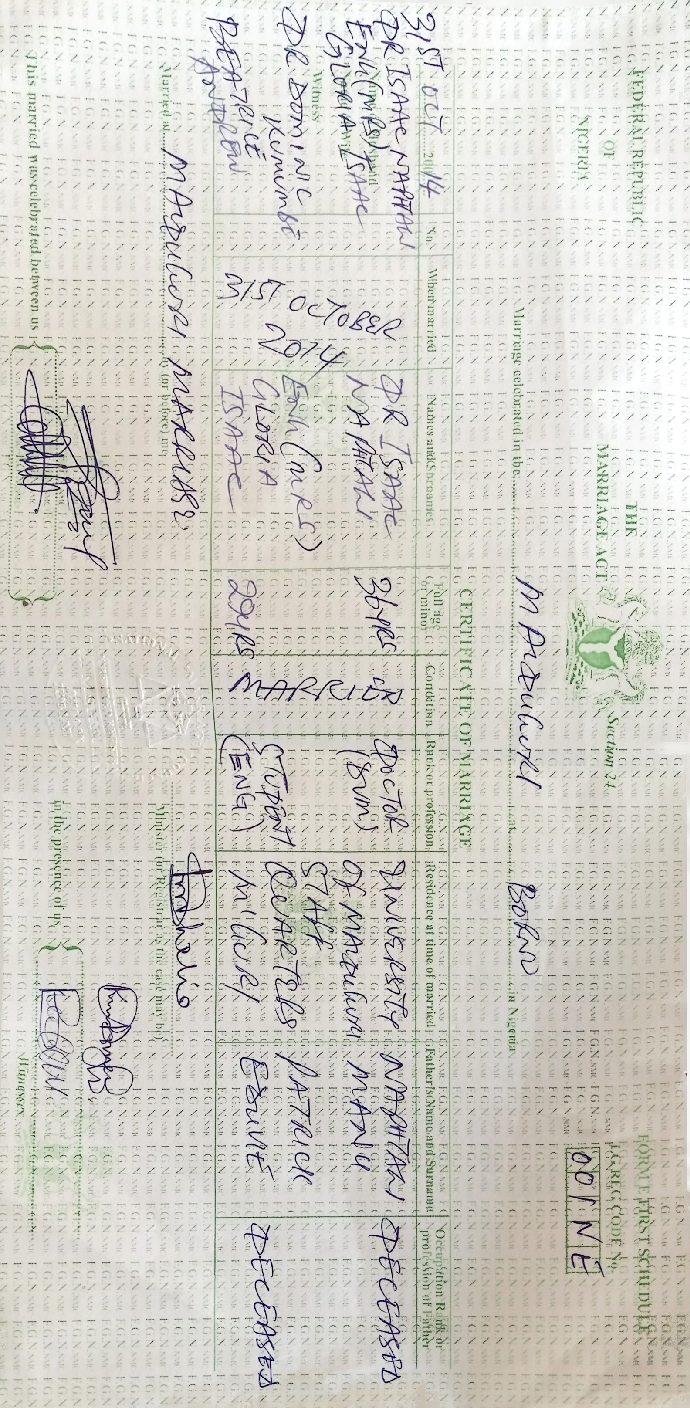 FEDERAL REPUBLIC
OF
NIGERIA
THE
MARRIAGE ACT
Section 24
FORM E FIRST SCHEDULE
L.G. REG CODE No.
001NE
Marriage celebrated in the MAIDUGURI at BORNO in Nigeria
CERTIFICATE OF MARRIAGE
No.
When married
Names and Surnames
Full age or minor
Condition
Rank or profession
Residence at time of married
Father's Name and Surname
Occupation Rank or profession of Father
31ST OCT 2014
DR ISAAC NAPHTAN
ENG (MRS) ISAAC
GLORIA
Witness
DR DOMINIC
KUMUMBE
BEATRICE
ANDREW
31ST OCTOBER
2014
DR ISAAC
NAPHTAN
ENG (MRS)
GLORIA
ISAAC
36YRS
29YRS
MARRIED
DOCTOR
(DVM)
STUDENT
(ENG)
UNIVERSITY
OF MAIDUGURI
STAFF
QUARTERS
M'GURI
NAPHTAN
MANU
PATRICK
DECEASED
DECEASED
Married at MAIDUGURI MARRIAGE by (or before) me
Minister (or Registrar as the case may be)
This married was celebrated between us
in the presence of us
Witnesses